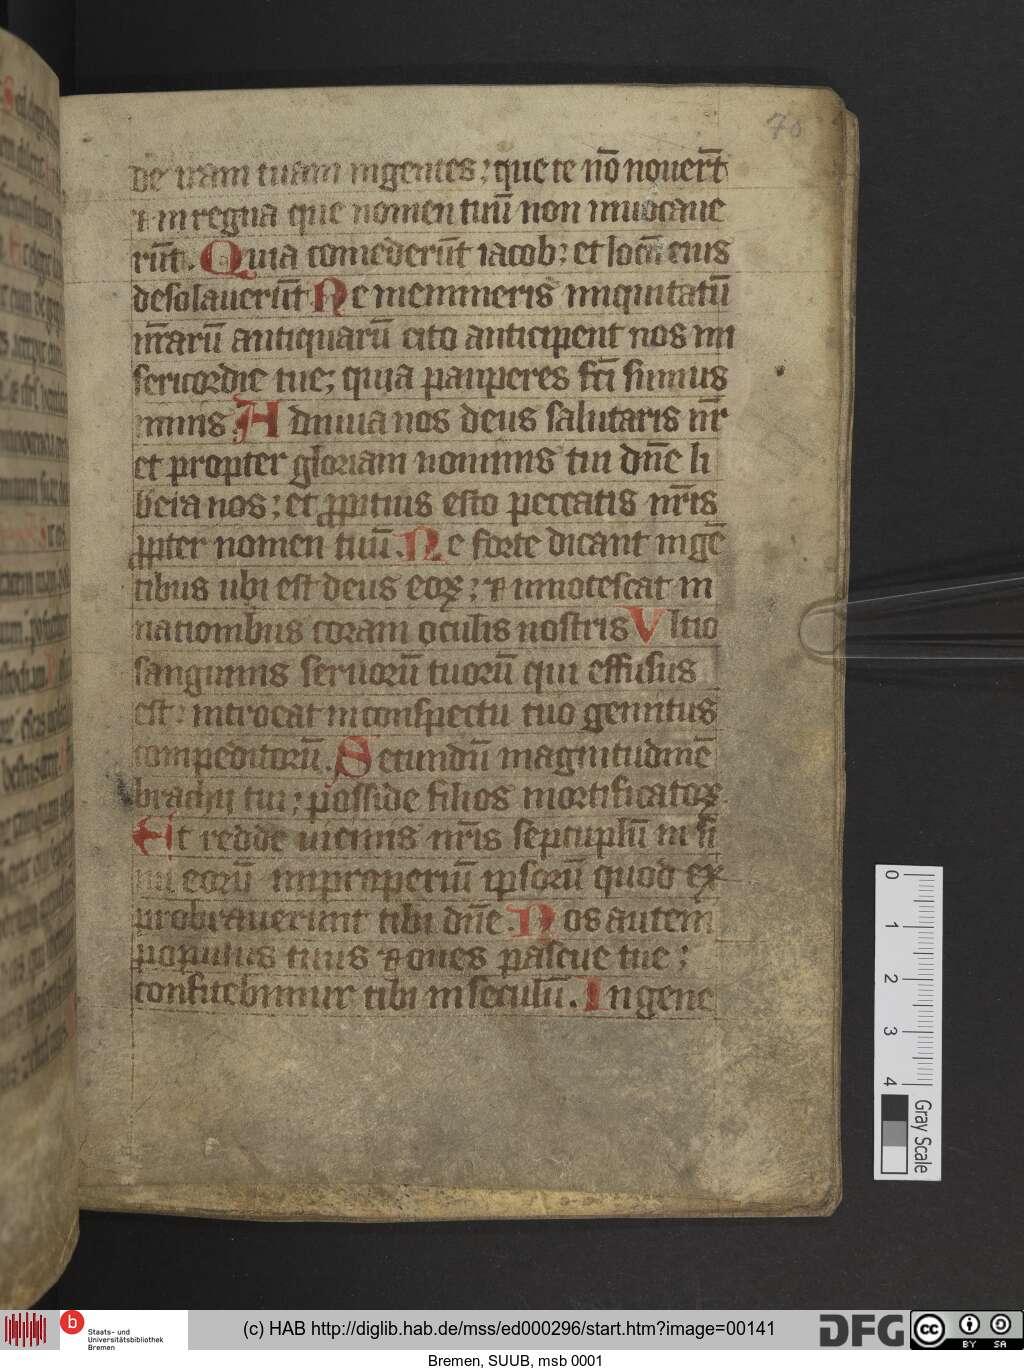 70
de iram tuam in gentes; que te nō nouer̄t
⁊ in regna que nomen tuū non inuocaue
rūt. Quia comederūt iacob; et locū eius
desolauerūt. Ne memineris iniquitatū
nr̄arū antiquarū cito anticipent nos mi
sericordie tue; quia pauperes fc̄i sumus
nimis. Adiuua nos deus salutaris nr̄
et propter gloriam nominis tui dn̄e li
bera nos; et ꝓpitius esto peccatis nr̄is
ꝓpter nomen tuū. Ne forte dicant in gē
tibus ubi est deus eoꝝ; ⁊ innotescat in
nationibus coram oculis nostris Vltio
sanguinis seruorū tuorū qui effusus
est: introeat in conspectu tuo gemitus
compeditorū. Secundū magnitudinē
brachij tui; posside filios mortificatoꝝ
Et redde uicinis nr̄is septuplū in si
nu eorū improperiū ipsorū quod ex
probrauerunt tibi dn̄e. Nos autem
populus tuus ⁊ oues pascue tue;
confitebimur tibi in seculū. In gene
0 1 2 3 4
Gray Scale
b Staats- und
Universitätsbibliothek
Bremen
(c) HAB http://diglib.hab.de/mss/ed000296/start.htm?image=00141
DFG
cc BY SA
Bremen, SUUB, msb 0001